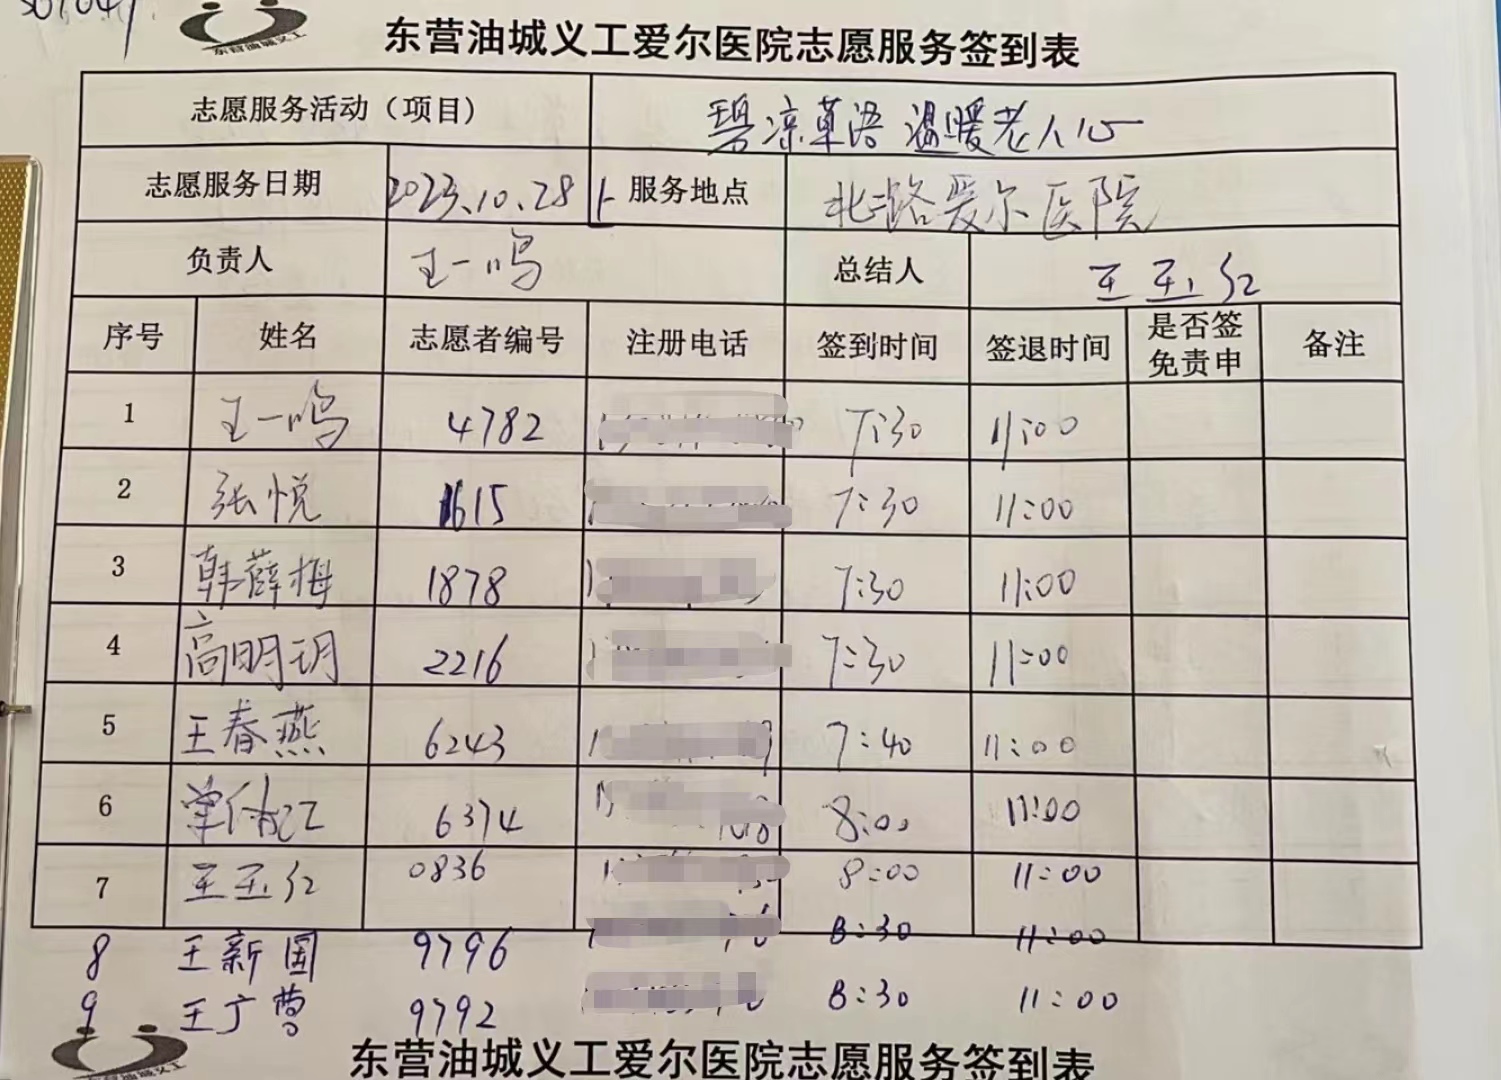 东营油城义工
东营油城义工爱尔医院志愿服务签到表
志愿服务活动（项目） 碧凉草语 温暖老人心
志愿服务日期 2023.10.28 上 服务地点 北二路爱尔医院
负责人 王一鸣 总结人 王玉红
序号 姓名 志愿者编号 注册电话 签到时间 签退时间 是否签免责申 备注
1 王一鸣 4782 7:30 11:00
2 张悦 1615 7:30 11:00
3 韩薛梅 1878 7:30 11:00
4 高明玥 2216 7:30 11:00
5 王春燕 6243 7:40 11:00
6 6374 8:00 11:00
7 王玉红 0836 8:00 11:00
8 王新国 9796 8:30 11:00
9 王广 9792 8:30 11:00
东营油城义工
东营油城义工爱尔医院志愿服务签到表